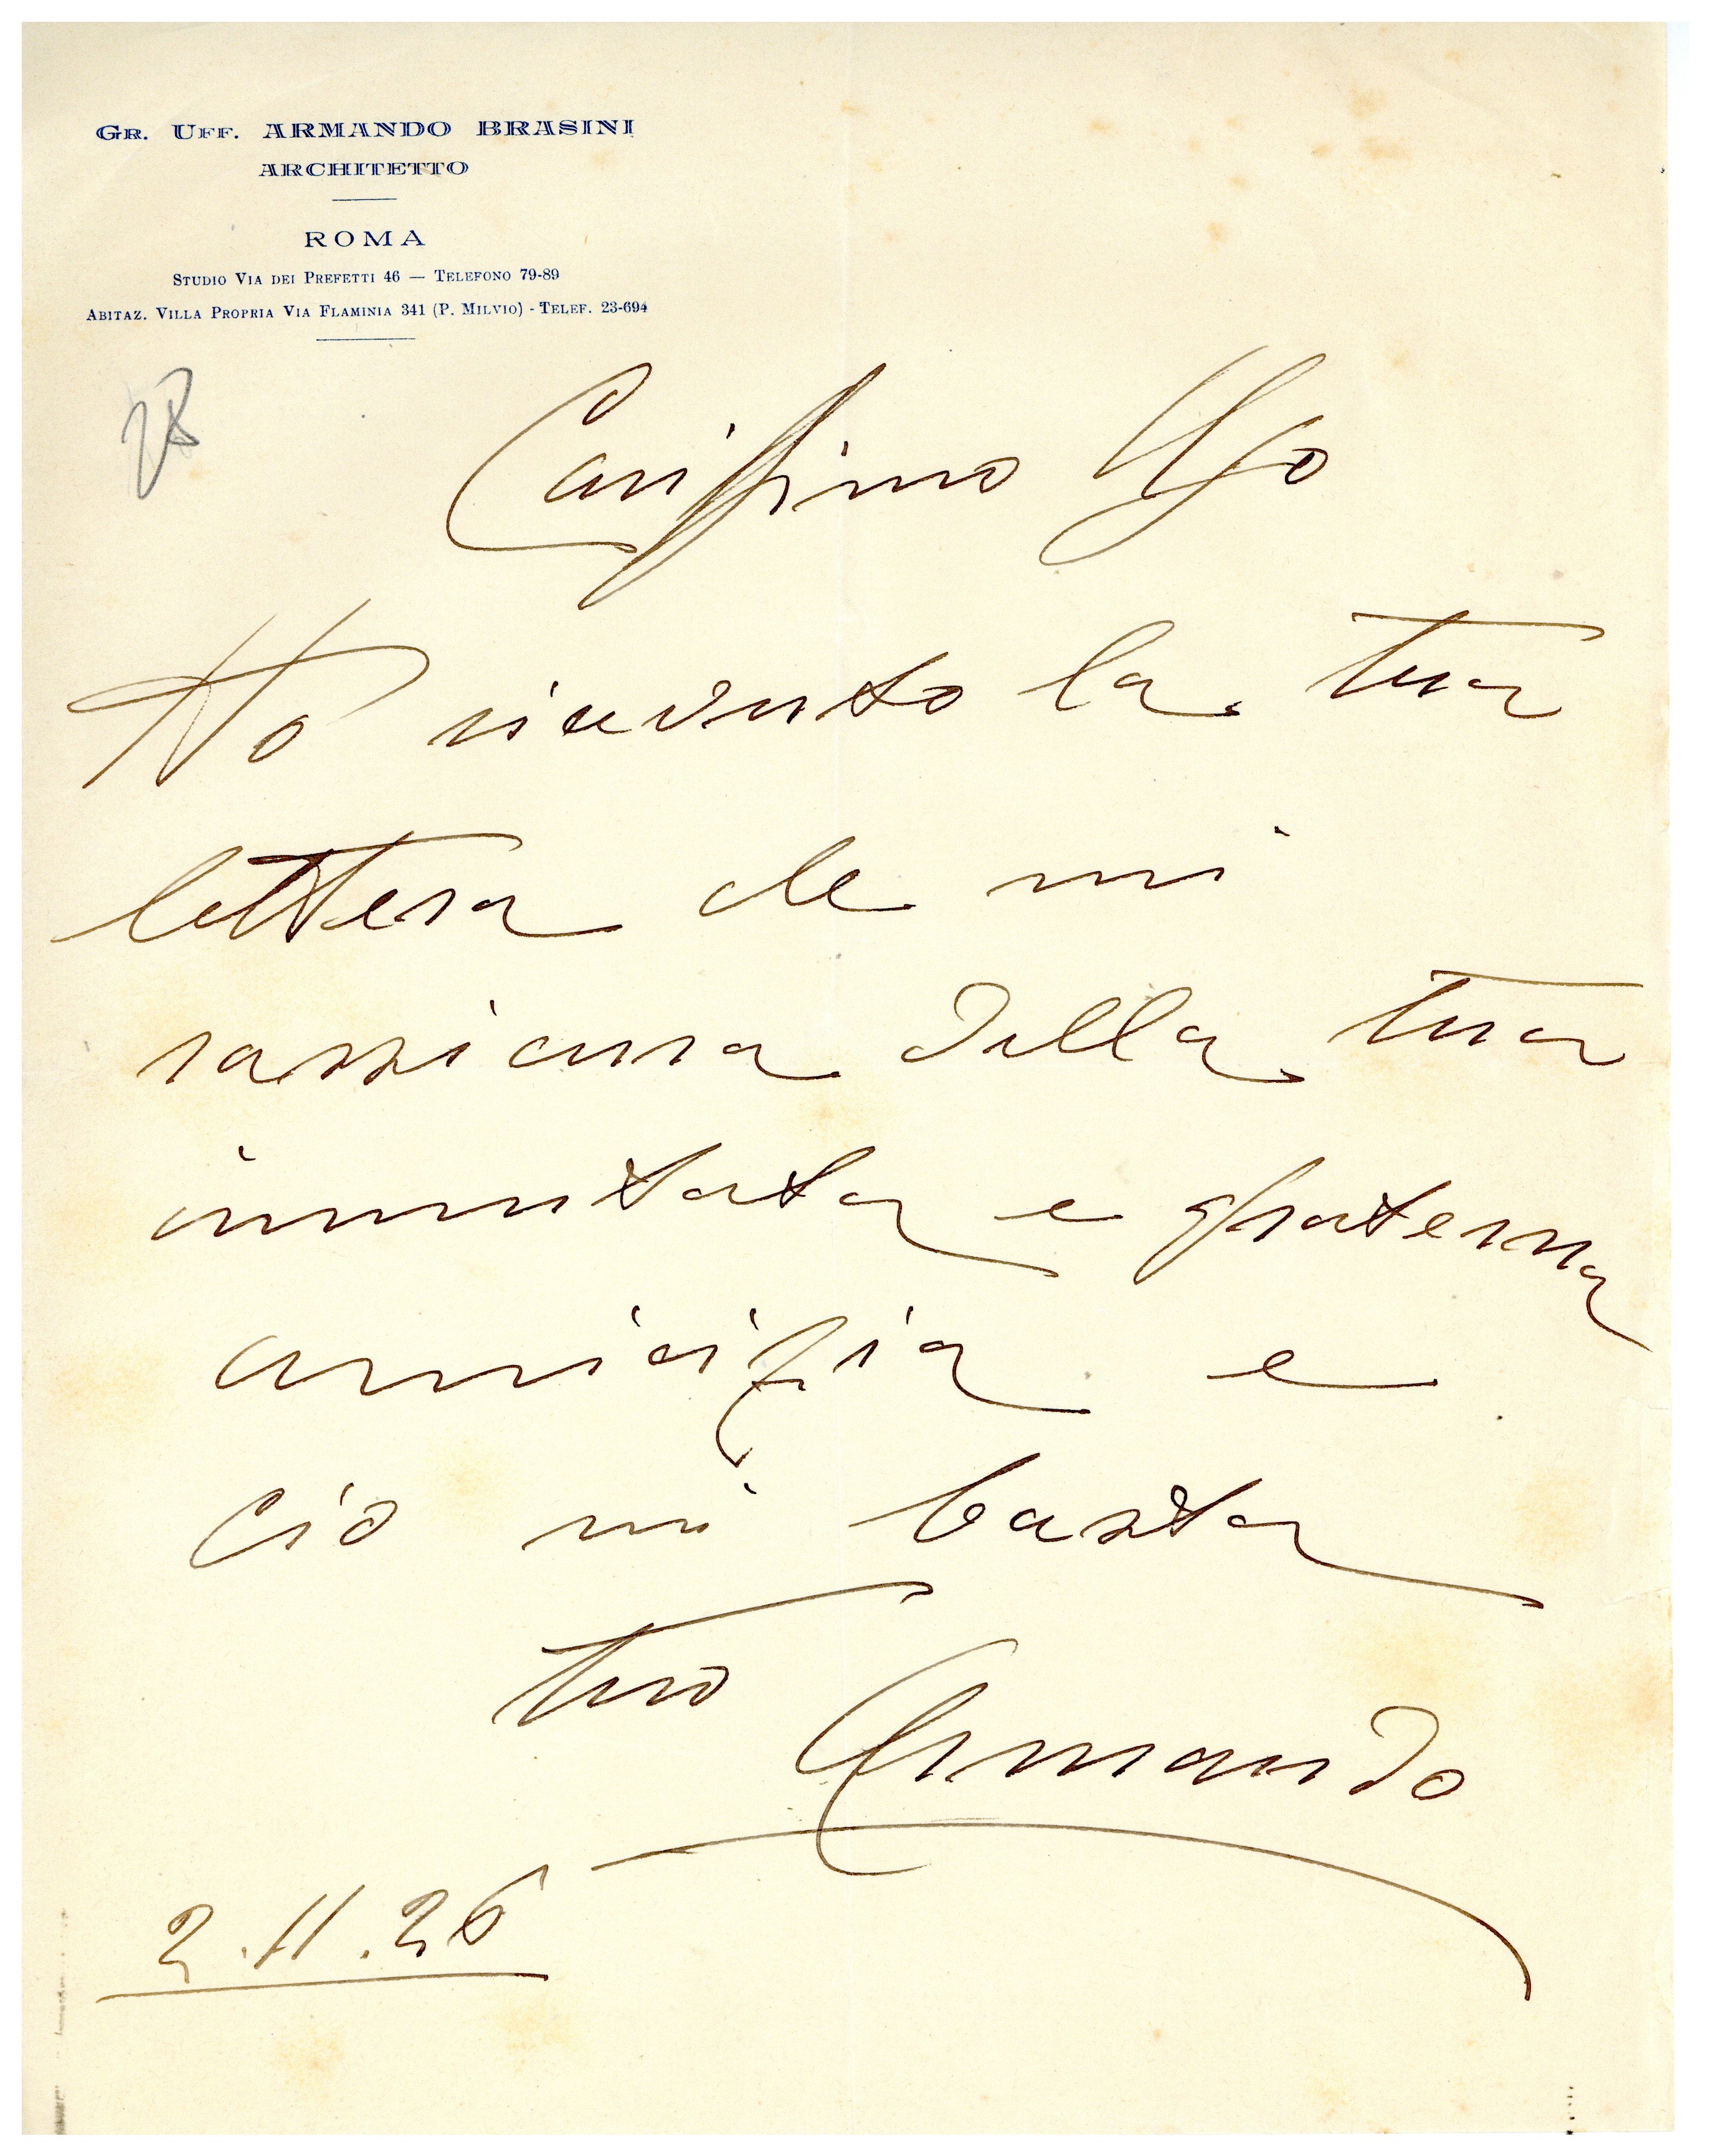 Gr. Uff. ARMANDO BRASINI
ARCHITETTO
ROMA
Studio Via dei Prefetti 46 — Telefono 79-89
Abitaz. Villa Propria Via Flaminia 341 (P. Milvio) - Telef. 23-694
28
Carissimo Ugo
Ho ricevuto la tua
lettera che mi
rassicura della tua
immutata e fraterna
amicizia e
ciò mi basta
tuo Armando
2.11.26